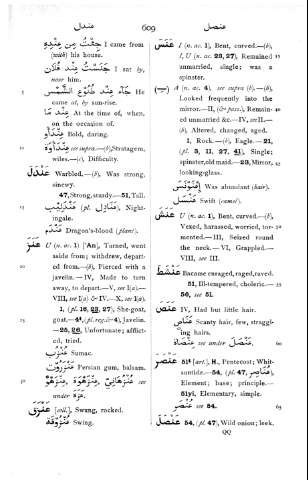 عندل
609
عنصل
جِئْتُ مِن عِنْدِهِ I came from
(with) his house.
جَلَسْتُ عِنْدَ فُلَان I sat by,
near him.
جَاءَ عِنْدَ طُلُوعِ الشَّمْسِ He
came at, by sun-rise.
عِنْدَ مَا At the time of, when,
on the occasion of.
Bold, daring.
see supra.—(b), Stratagem,
wiles.—(c), Difficulty.
عَنْدَلَ Warbled.—(b), Was strong,
sinewy.
47, Strong, sturdy.—51, Tall.
عَنْدَلِيب (pl. عَنَادِل), Night-
ingale.
عَنْدَم Dragon's-blood (plant).
عَنَزَ U (n. ac. 1) ['An], Turned, went
aside from; withdrew, depart-
ed from.—(b), Pierced with a
javelin.—IV, Made to turn
away, to depart.—V, see I(a).—
VIII, see I(a) & IV.—X, see I(a).
(pl. 16, 23, 27), She-goat,
goat.—(pl. reg. & 4), Javelin.
—25, 26, Unfortunate; afflict-
ed, tried.
Sumac.
عَنْزَرُوت Persian gum, balsam.
see
under
[coll.], Swang, rocked.
Swing.
عَنَسَ I (n. ac. 1), Bent, curved.—(b),
I, U (n. ac. 23, 27), Remained
unmarried, single; was a
spinster.
A (n. ac. 4), see supra (b).—(b),
Looked frequently into the
mirror.—II, (& pass.), Remain-
ed unmarried &c.—IV, see II.—
(b), Altered, changed, aged.
1, Rock.—(b), Eagle.—21,
(pl. 3, II, 27, 41), Single;
spinster, old maid.—23, Mirror,
looking-glass.
Was abundant (hair).
Swift (camel).
عَنَشَ U (n. ac. 1), Bent, curved.—(b),
Vexed, harassed, worried, tor-
mented.—III, Seized round
the neck.—VI, Grappled.—
VIII, see III.
عَنْشَطَ Became enraged, raged, raved.
51, Ill-tempered, choleric.—
56, see 51.
عَنَصَ IV, Had but little hair.
Scanty hair, few, straggl-
ing hairs.
see under
[art.], H., Pentecost; Whit-
suntide.—54, (pl. 47, عَنَاصِر),
Element; base; principle.—
51yi, Elementary, simple.
عُنْصُر see 54.
عُنْصُل 54, (pl. 47), Wild onion; leek.
QQ